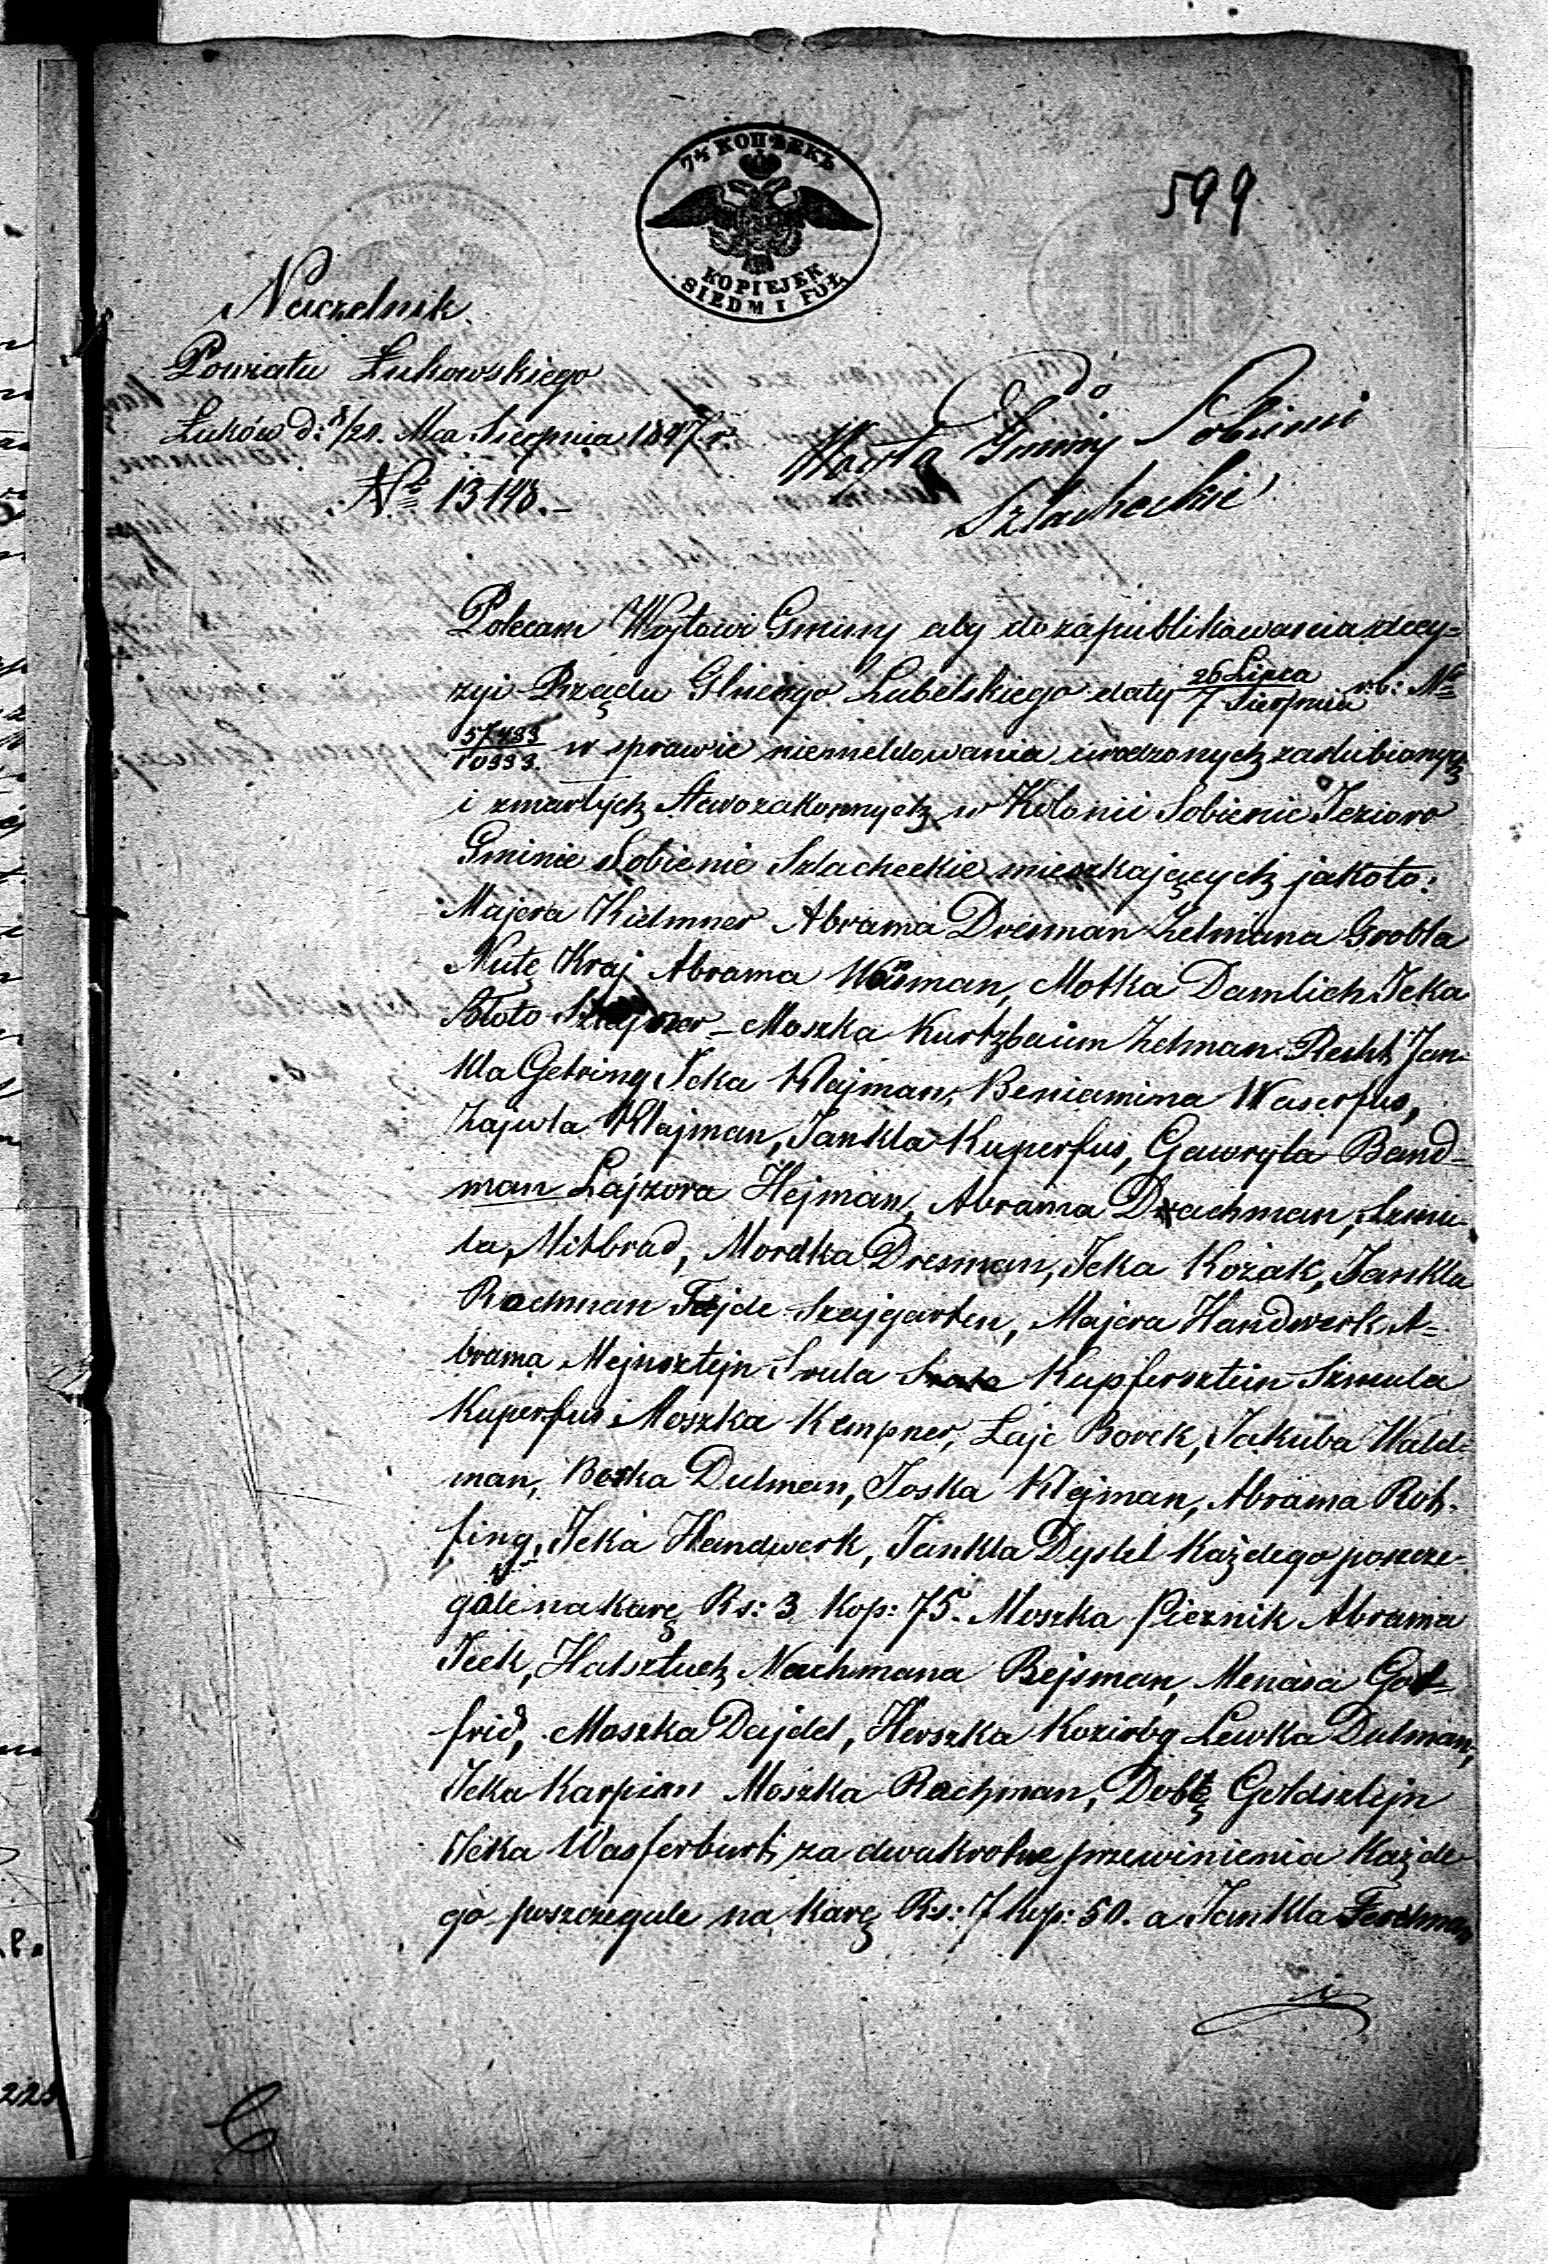 7½ КОПѢЕКЪ
KOPIEJEK
SIEDM I PÓŁ
599
Naczelnik
Powiatu Łukowskiego
Łuków d: 8/20. Mca Sierpnia 1847 r.
№ 13148.
Do
Wójta Gminy Sobienie
Szlacheckie
Polecam Wójtowi Gminy aby do zapublikowania decy=
zyi Rządu Glnego Lubelskiego daty 26 Lipca / 7 Sierpnia r: b: №
57433 / 10333 w sprawie niemeldowania urodzonych zaślubionych
i zmarłych Starozakonnych w Kolonii Sobienie Jezioro
Gminie Sobienie Szlacheckie mieszkających jakoto:
Majera Kielmner Abrama Dresman Zelmana Grobla
Nutę Kraj Abrama Wasman, Motka Damlich Icka
Błoto Moszka Kurtzbaum Zelman Recht Jan-
kla Gebring Icka Klajman, Beniamina Waserfus,
Zajwla Klajman, Jankla Kuperfus, Gawryła Band=
man Lajzora Hejman, Abrama Drachman, Szmu-
la Mitbrad, Mordka Dresman, Icka Kozak, Jankla
Rochman Fajde Szajgarten, Majera Handwerk A=
brama Mejnsztejn Srula Kupfersztein Szmula
Kuperfus Moszka Kempner, Laje Borek, Jakuba Wald=
man, Boska Dulman, Joska Klejman, Abrama Rot-
fing, Icka Handwerk, Jankla Dystel Każdego poszcze-
góle na karę Rs: 3 Kop: 75. Moszka Pieznik Abrama
Icek, Halsztuch Nachmana Bejsman, Menasa Got=
frid, Moszka Dajdel, Herszka Koziróg Lewka Dulman,
Icka Karpian Moszka Rochman, Doblę Goldsztejn
Icka Wasferburt, za dwukrotne przewinienia Każde-
go poszczegule na karę Rs: 7 Kop: 50. a Jankla Ferdman